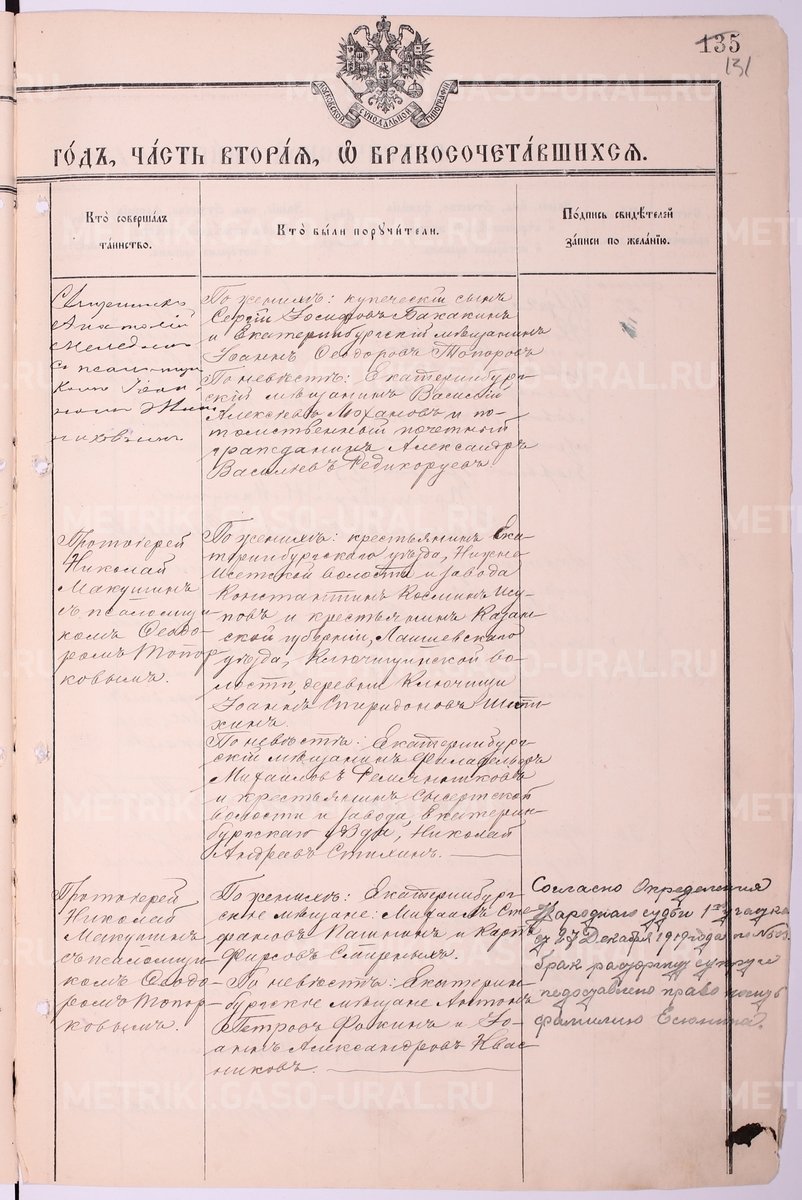 135
131
МОСКОВСКОЙ СѴНОДАЛЬНОЙ ТИПОГРАФІИ
ГО́ДЪ, ЧА́СТЬ ВТОРА́Ѧ, Ѽ БРАКОСОЧЕТА́ВШИХСѦ.
Кто̀ совершалъ
та́инство.
Кто̀ бы́ли порꙋчи́тели.
По́дпись свидѣ́телей
за́писи по жела́нїю.
Священникъ
Анатолій
съ псаломщи
комъ Іоан
номъ
По женихѣ: купеческій сынъ
Сергій Іосифовъ Бакакинъ
и Екатеринбургскій мѣщанинъ
Іоаннъ Ѳеодоровъ Топоровъ
По невѣстѣ: Екатеринбург-
скій мѣщанинъ Василій
Алексѣевъ Моханов и по-
томственный почетный
гражданинъ Александръ
Васильевъ Редикорцев
Протоіерей
Николай
Макушинъ
съ псаломщи-
комъ Ѳеодо-
ромъ Топор
ковымъ.
По женихѣ: крестьянин Ека-
теринбургскаго уѣзда, Нижне
Исетской волости и завода
Константин Космин Юсу-
повъ и крестьянин Казан-
ской губерніи, Лаишевскаго
уѣзда, Ключищинской во-
лости, деревни Ключищи
Іоаннъ Спиридоновъ
хинъ.
По невѣстѣ: Екатеринбург-
скій мѣщанинъ Филадельфъ
Михаиловъ Ремянниковъ
и крестьянин Сысертской
волости и завода, Екатерин-
бургскаго уѣзда, Николай
Андреевъ Стихинъ.
Протоіерей
Николай
Макушинъ
съ псаломщи
комъ Ѳеодо-
ромъ Топор-
ковымъ.
По женихѣ: Екатеринбург-
скіе мѣщане: Михаилъ Сте-
фановъ Пашнин и Карпъ
Фирсовъ Смирныхъ.
По невѣстѣ: Екатерин-
бургскіе мѣщане Антонъ
Петровъ Фокинъ и Іо-
аннъ Александровъ Квас-
никовъ.
Согласно Определения
Народнаго судьи 1го участка
от 27 Декабря 1919 года за №
брак расторгнут супруге
предоставлено право носить
фамилию Есюнина.
METRIKI.GASO-URAL.RU